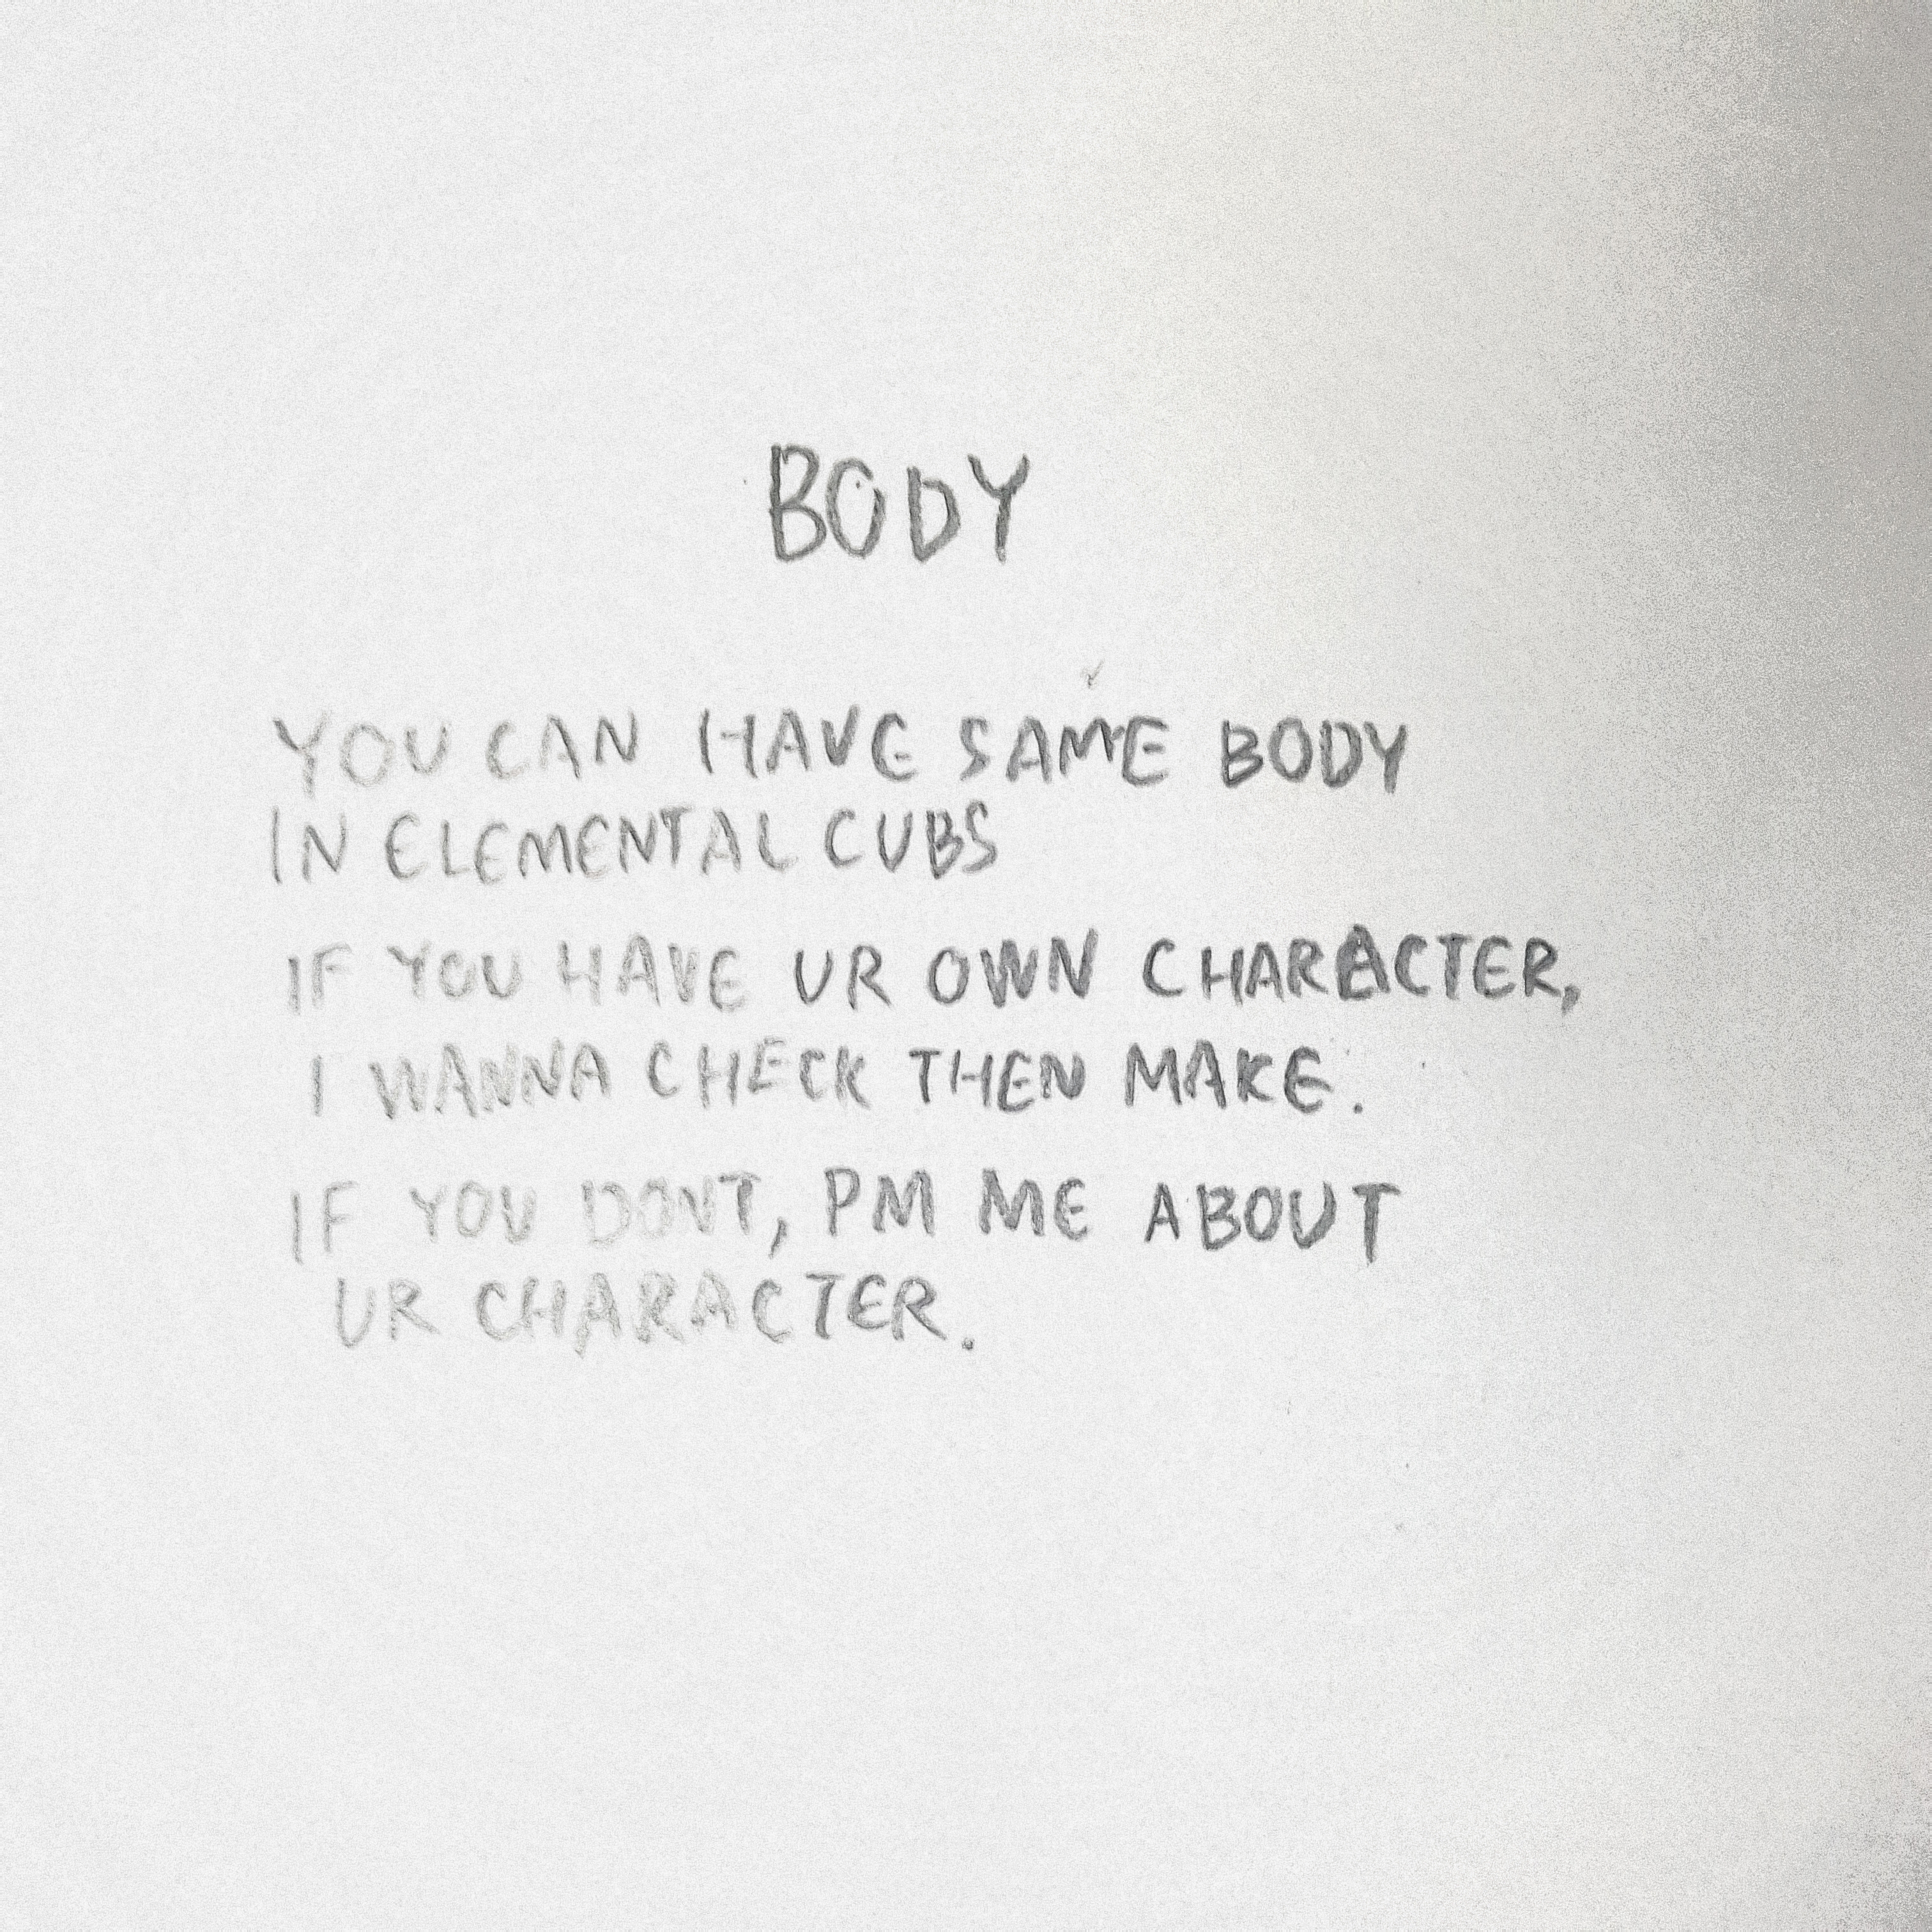 BODY
YOU CAN HAVE SAME BODY
IN ELEMENTAL CUBS
IF YOU HAVE UR OWN CHARACTER,
I WANNA CHECK THEN MAKE.
IF YOU DONT, PM ME ABOUT
UR CHARACTER.